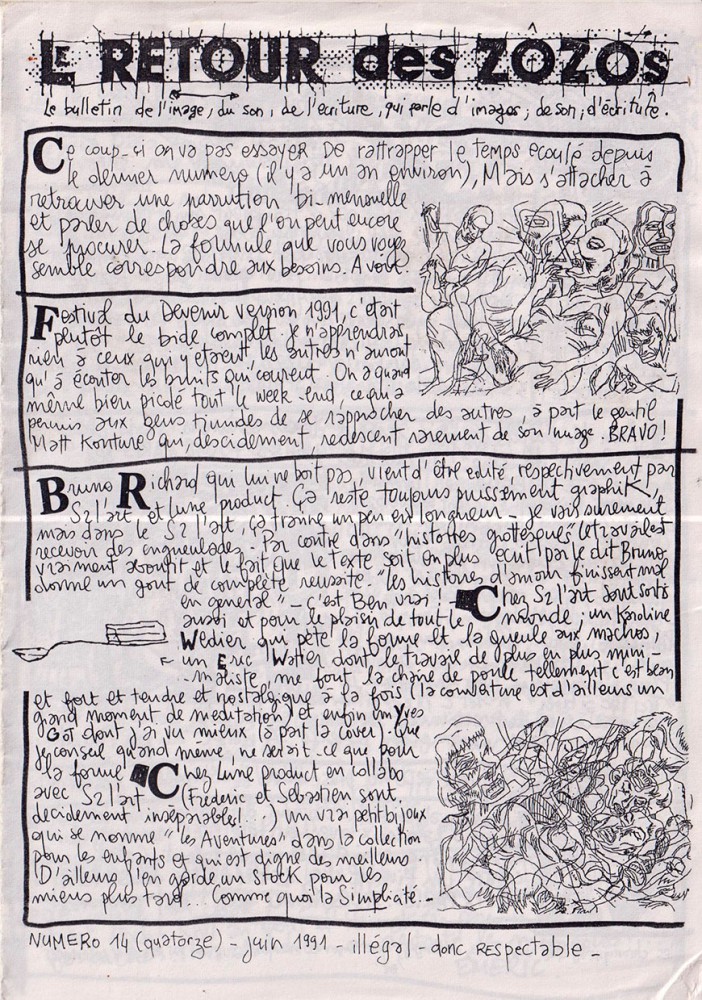 LE RETOUR des ZÔZOs
Le bulletin de l'image, du son, de l'ecriture, qui parle d'images, de son, d'écriture.
Ce coup-ci on va pas essayer de rattrapper le temps ecoulé depuis
le dernier numero (il y a un an environ), Mais s'attacher à
retrouver une parrution bi-mensuelle
et parler de choses que l'on peut encore
se procurer. La formule que vous voyez
semble correspondre aux besoins. A voir.
Festival du Devenir version 1991, c'était
plutôt le bide complet. Je n'apprendrai
rien à ceux qui y etaient, les autres n'auront
qu'à écouter les bruits qui courent. On a quand
même bien picolé tout le week-end, ce qui a
permis aux gens timides de se rapprocher des autres, à part le gentil
Matt Konture qui, descidement, redescent rarement de son nuage. BRAVO!
Bruno Richard qui lui ne boit pas, vient d'être edité, respectivement par
S2 l'art, et Lune product. Ça reste toujours puissement graphiK,
mais dans le S2 l'art, ça traine un peu en longueur - je vais surement
recevoir des engueulades. Par contre dans "histoires grottesques" le travail est
vraiment abouti et le fait que le texte soit en plus ecrit par le dit Bruno,
donne un gout de complète reussite. "les histoires d'amour finissent mal
en general" - C'est Ben vrai! Chez S2 l'art sont sortis
aussi et pour le plaisir de tout le monde; un Karoline
Wedier qui pète la forme et la gueule aux machos,
un Eric Watier dont le travail de plus en plus mini-
-maliste, me fout la chaire de poule tellement c'est beau
et fort et tendre et nostalgique à la fois (la couverture est d'ailleurs un
grand moment de meditation) et enfin un Yves
Got dont j'ai vu mieux (à part la cover). Que
je conseil quand même, ne serait-ce que pour
la forme Chez Lune product en collabo
avec S2 l'art (Frederic et Sebastien sont
decidement inséparables!...) un vrai petit bijoux
qui se nomme "les Aventures" dans la collection
pour les enfants et qui est digne des meilleurs.
D'ailleurs j'en garde un stock pour les
miens plus tard... Comme quoi la Simplicité.-
NUMERO 14 (quatorze) - juin 1991 - illégal - donc RESPECTABLE -